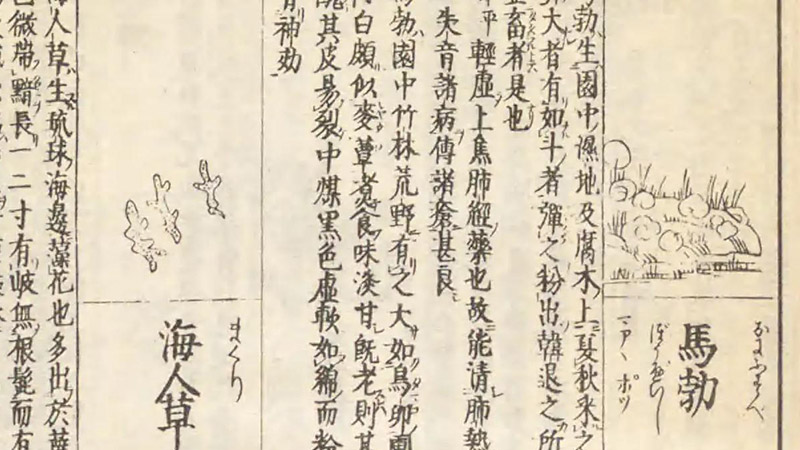 おにふすべ
馬勃
マアヽ ポッ
勃生園中濕地及腐木上夏秋采之
大者有如斗者彈之粉出韓退之所
畜者是也
平輕虛上焦肺經藥也故能清肺熱
失音諸病傅諸瘡甚良
勃園中竹林荒野有之大如鳥卵圓
白頗似麥蕈煮食味淡甘既老則其
其皮易裂中煤黑色虛軟如綿而粉
有神効
まくり
海人草
海人草生琉球海邊藻花也多出於薩
色微帶黯長一二寸有岐無根髭而有